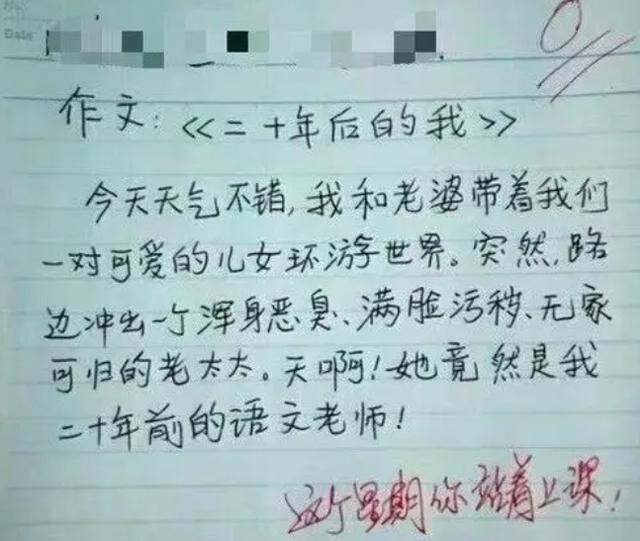 No.
Date
0
作文:《二十年后的我》
今天天气不错,我和老婆带着我们
一对可爱的儿女环游世界。突然,路
边冲出一个浑身恶臭、满脸污秽、无家
可归的老太太。天啊!她竟然是我
二十年前的语文老师!
这个星期你站着上课!